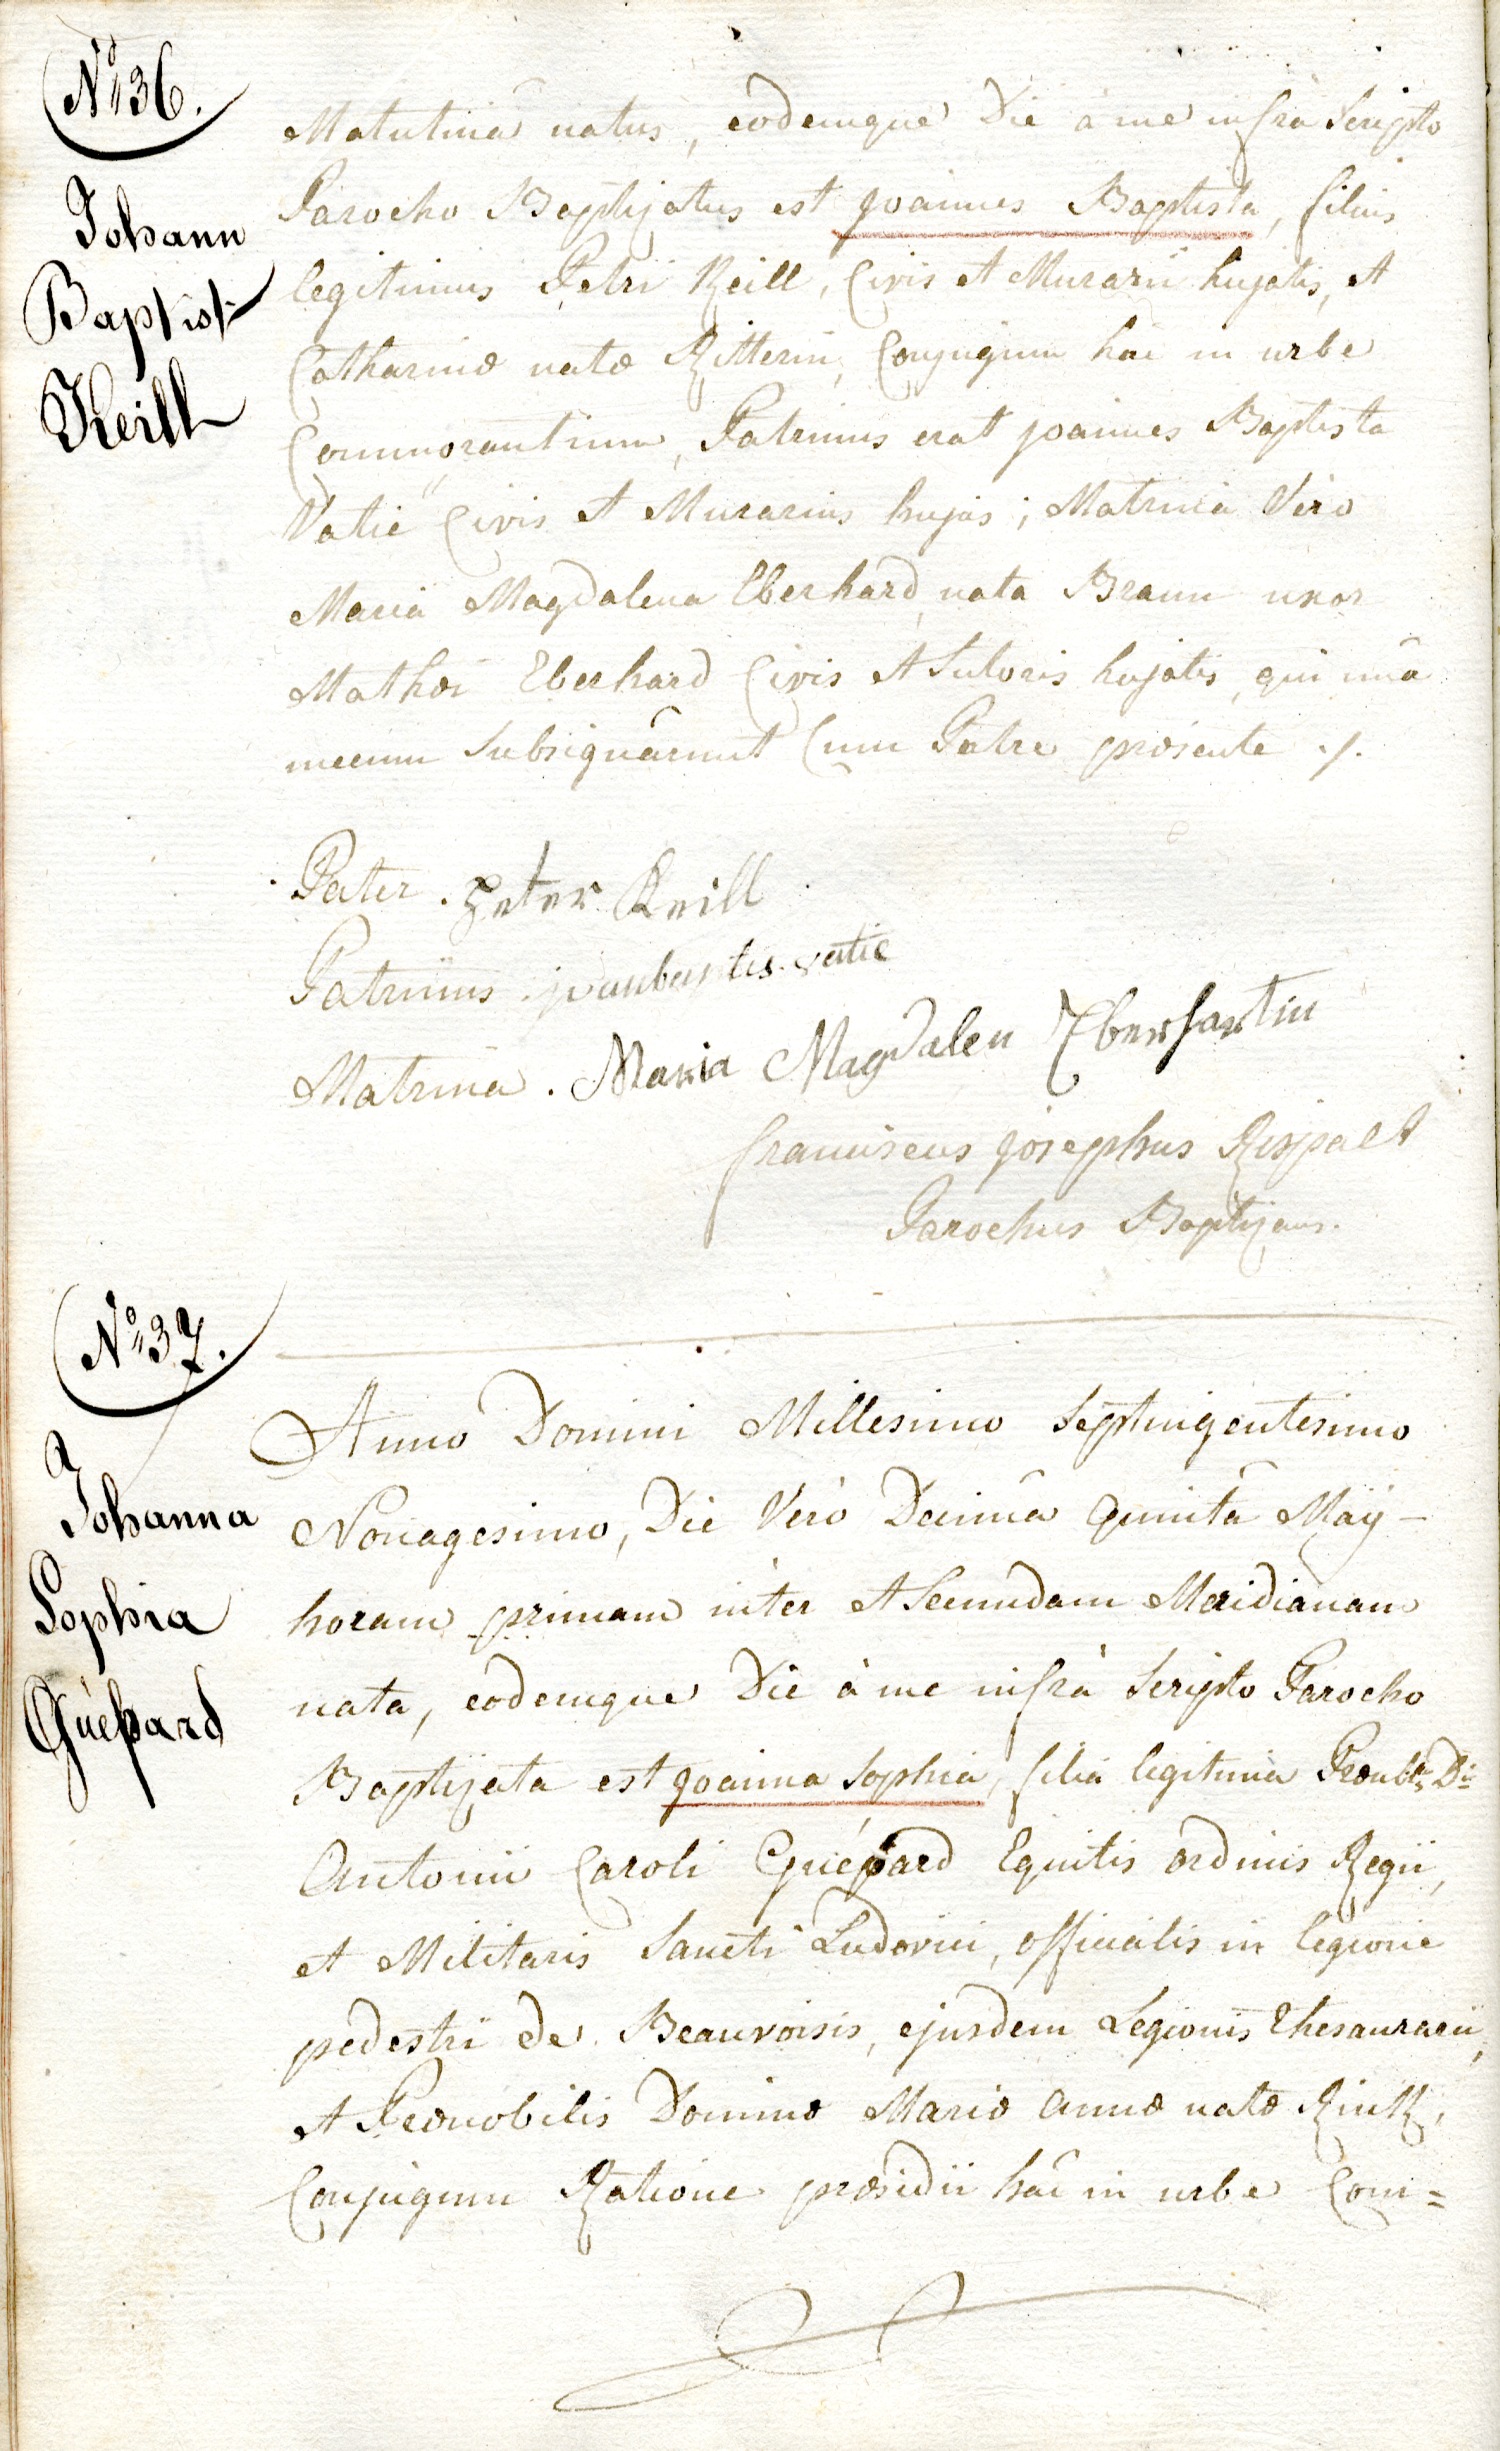 No 36.
Johann
Baptist
Keill
Matutinâ natus, eodemque Die à me infrà Scripto
Parocho Baptizatus est joannes Baptista, filius
legitimus Petri Keill, Civis et Murarii hujatis, et
Catharinæ natæ Ritterin, Conjugum hâc in urbe
Commorantium, Patrinus erat joannes Baptista
Vatié Civis et Murarius hujas; Matrina Vero
Maria Magdalena Eberhard, nata Braun uxor
Mathæi Eberhard Civis et Sutoris hujatis, qui unà
mecum Subsignârunt Cum Patre præsente ./.
Pater. Peter Keill
Patrinus. janbaptis vatie
Matrina. Maria Magdalen Eberhartin
franciscus josephus Rispalt
Parochus Baptizans.
No 37.
Johanna
Sophia
Guépard
Anno Domini Millesimo Septingentesimo
Nonagesimo, Die Verò Decimâ Quintâ Maÿ –
horam primam inter et Secundam Meridianam
nata, eodemque Die à me infrà Scripto Parocho
Baptizata est joanna Sophia, filia legitima Prænobis Di
Antonii Caroli Guépard Equitis ordinis Regii,
et Militaris Sancti Ludovici, officialis in legione
pedestri de Beauvoisis, ejusdem Legionis Thesaurarii,
et Prænobilis Dominæ Mariæ Annæ natæ Rintz,
Conjugum Ratione præsidii hâc in urbe Com=